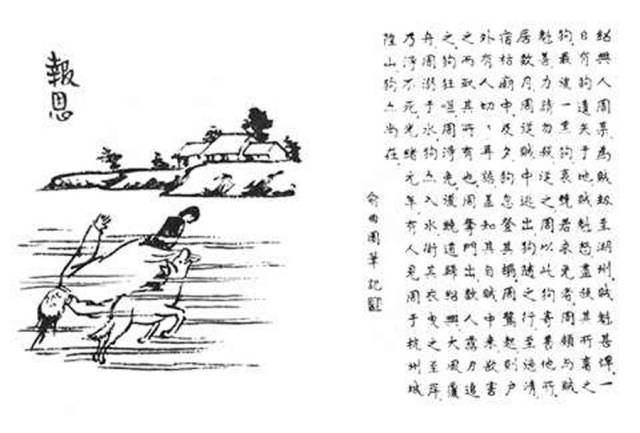 報恩
紹興人周某為賊劫至湖州賊魁甚悍一
日有狗遺矢于地賊魁怒盡殺其所畜
狗最後一黑狗哀鳴若求免者周某與賊
魁善力請勿殺從之周以此狗寄養他所
居數月周從賊中逃出狗隨之行至德清
宿枯廟中及夕狗忽登其榻周驚起則戶
外有人切切耳語蓋知其自賊中來欲害
之而取其所有也周奪門出數人露刃追
之狗狂噬周得免後繞道歸紹興大風覆
舟周溺于水狗亦入水銜其衣曳之至岸
乃得不死光緒元年有人見周于杭州城
隍山狗亦尚在
俞曲園筆記